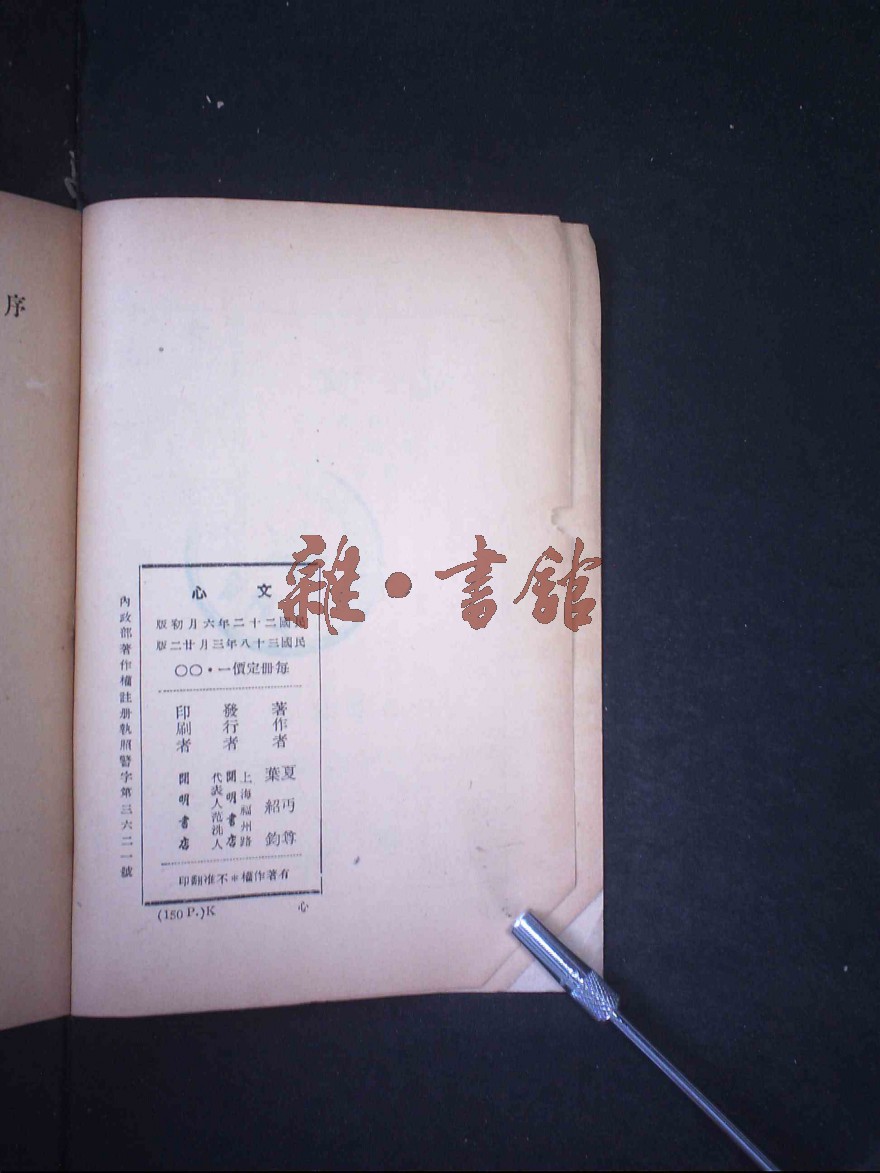 序
文心
民國二十二年六月初版
民國三十八年三月廿二版
每冊定價一·〇〇
著作者
夏丏尊
葉紹鈞
發行者
上海福州路
開明書店
代表人范洗人
印刷者
開明書店
有著作權＊不准翻印
內政部著作權註册執照警字第三六二一號
(150 P.)K
心
雜·書館